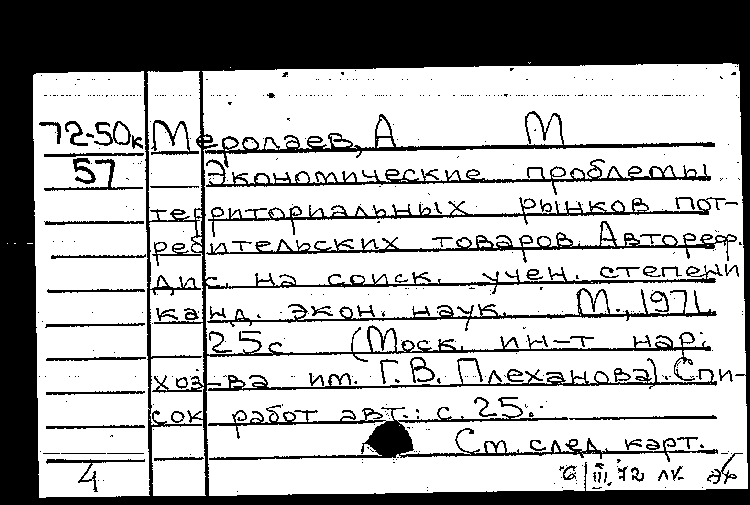 72-50к Меролаев, А М
57 Экономические проблемы
территориальных рынков пот-
ребительских товаров. Автореф.
дис. на соиск. учен. степени
канд. экон. наук. М., 1971.
25с (Моск. ин-т нар.
хоз-ва им. Г. В. Плеханова). Спи-
сок работ авт.: с. 25.
См. след. карт.
4 6/III.72 лк.